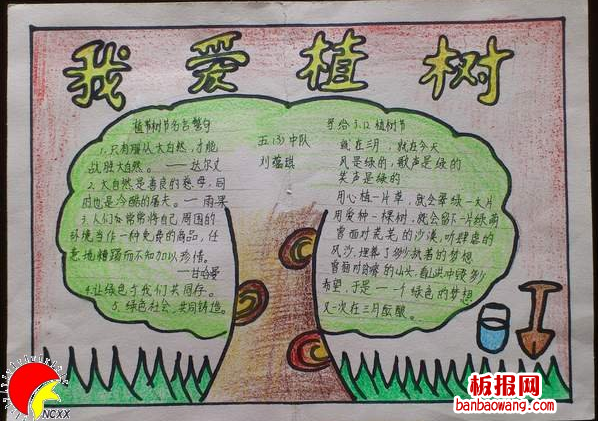 我爱植树
植树节名言警句
1.只有顺从大自然,才能
战胜大自然。——达尔文
2.大自然是善良的慈母,同
时也是冷酷的屠夫。——雨果
3.人们常常将自己周围的
环境当作一种免费的商品,任
意地糟蹋而不知加以珍惜。
——甘哈曼
4.让绿色与我们共同存。
5.绿色社会,共同铸造。
五(3)中队
刘蕴琪
写给3.12植树节
就在三月,就在今天
风是绿的,歌声是绿的
笑声是绿的
用心植一片草,就会翠绿一大片
用爱种一棵树,就会留下一片绿荫
曾面对茫茫的沙漠,听肆虐的
风沙,埋葬了多少执著的梦想
曾面对的山头,看山洪冲毁多少
希望,于是一个绿色的梦想
又一次在三月酝酿。
NCXX
板报网
banbaowang.com